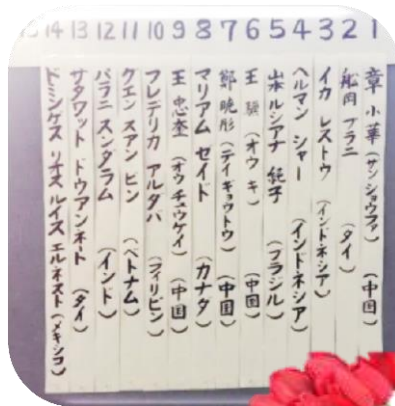 15 14 13 12 11 10 9 8 7 6 5 4 3 2 1
章 小華 (サン ショウファ) (中国)
船岡 プラニ (タイ)
イカ レストウ (インドネシア)
ヘルマン シャー (インドネシア)
ルシアナ 純子 (ブラジル)
王 (オウ キ) (中国)
鄭 暁彤 (テイ キョウトウ) (中国)
マリアム ゼイド (カナダ)
王 忠奎 (オウ チュウケイ) (中国)
フレデリカ アルダバ (フィリピン)
グエン スアン ビン (ベトナム)
バラニ スンダラム (インド)
サタワット ドウアンネート (タイ)
ドミンゲス リオス ルイス エルネスト (メキシコ)